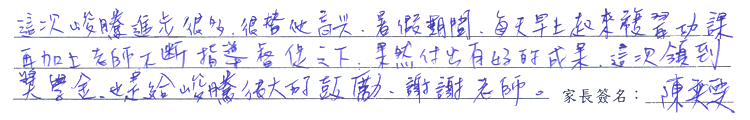 這次峻騰進步很多,很替他高兴,暑假期間,每天早上起來複習功課
再加上老師不斷指導督促之下,果然付出有好的成果,這次領到
獎學金,也是給峻騰很大的鼓勵、謝謝老師。 家長簽名:陳奕雯